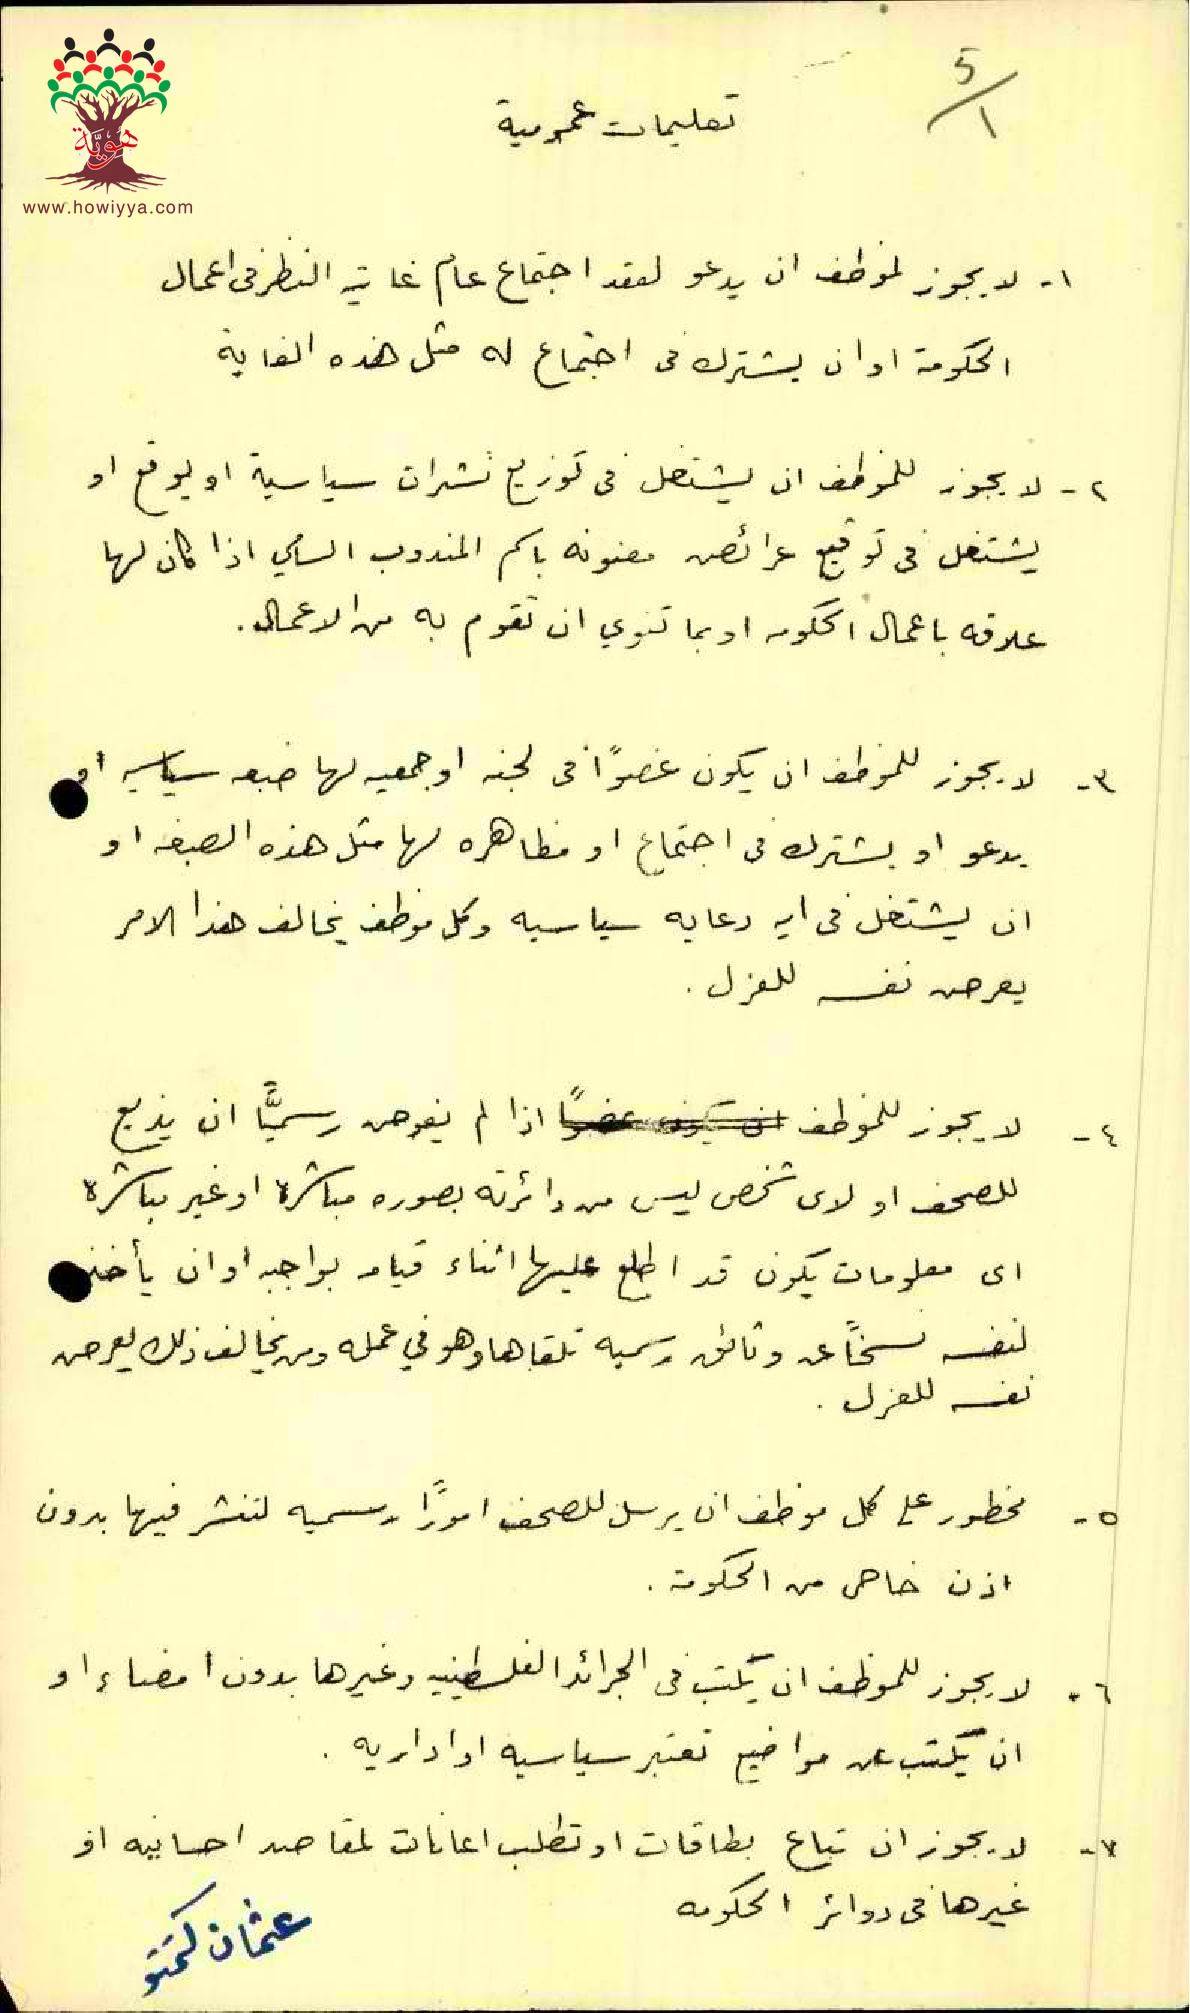 هوية
www.howiyya.com
5/1
تعليمات عمومية
١- لا يجوز لموظف ان يدعو لعقد اجتماع عام غايته النظر في اعمال
الحكومة او ان يشترك في اجتماع له مثل هذه الغاية
٢- لا يجوز للموظف ان يشتغل في توزيع نشرات سياسية او يوقع او
يشتغل في توقيع عرائض معنونه باسم المندوب السامي اذا كان لها
علاقه باعمال الحكومه او بما تنوي ان تقوم به من الاعمال.
٣- لا يجوز للموظف ان يكون عضوًا في لجنه او جمعيه لها صبغه سياسيه او
يدعو او يشترك في اجتماع او مظاهره لها مثل هذه الصبغه او
ان يشتغل في ايه دعايه سياسيه وكل موظف يخالف هذا الامر
يعرض نفسه للعزل.
٤- لا يجوز للموظف ان يكون عضوًا اذا لم يفوض رسميًّا ان يذيع
للصحف او لاى شخص ليس من دائرته بصوره مباشرة او غير مباشرة
اى معلومات يكون قد اطلع عليها اثناء قيامه بواجبه او ان يأخذ
لنفسه نسخًا عن وثائق رسميه تلقاها وهو في عمله ومن يخالف ذلك يعرض
نفسه للعزل.
٥- محظور على كل موظف ان يرسل للصحف امورًا رسميه لتنشر فيها بدون
اذن خاص من الحكومة.
٦- لا يجوز للموظف ان يكتب في الجرائد الفلسطينيه وغيرها بدون امضاء او
ان يكتب عن مواضيع تعتبر سياسيه او اداريه.
٧- لا يجوز ان تباع بطاقات او تطلب اعانات لمقاصد احسانيه او
غيرها في دوائر الحكومه
عثمان